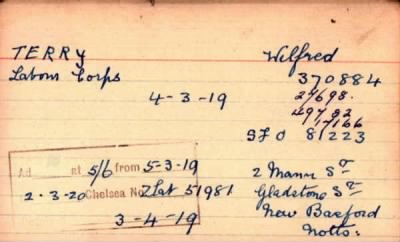 TERRY Wilfred
Labour Corps 370884
4-3-19 27698.
49792
17166
SFO 81223
Ad at 5/6 from 5-3-19 2 Manor St
2-3-20 Chelsea No. 2 Lst 51981 Gladstone St
3-4-19 New Basford
Notts.